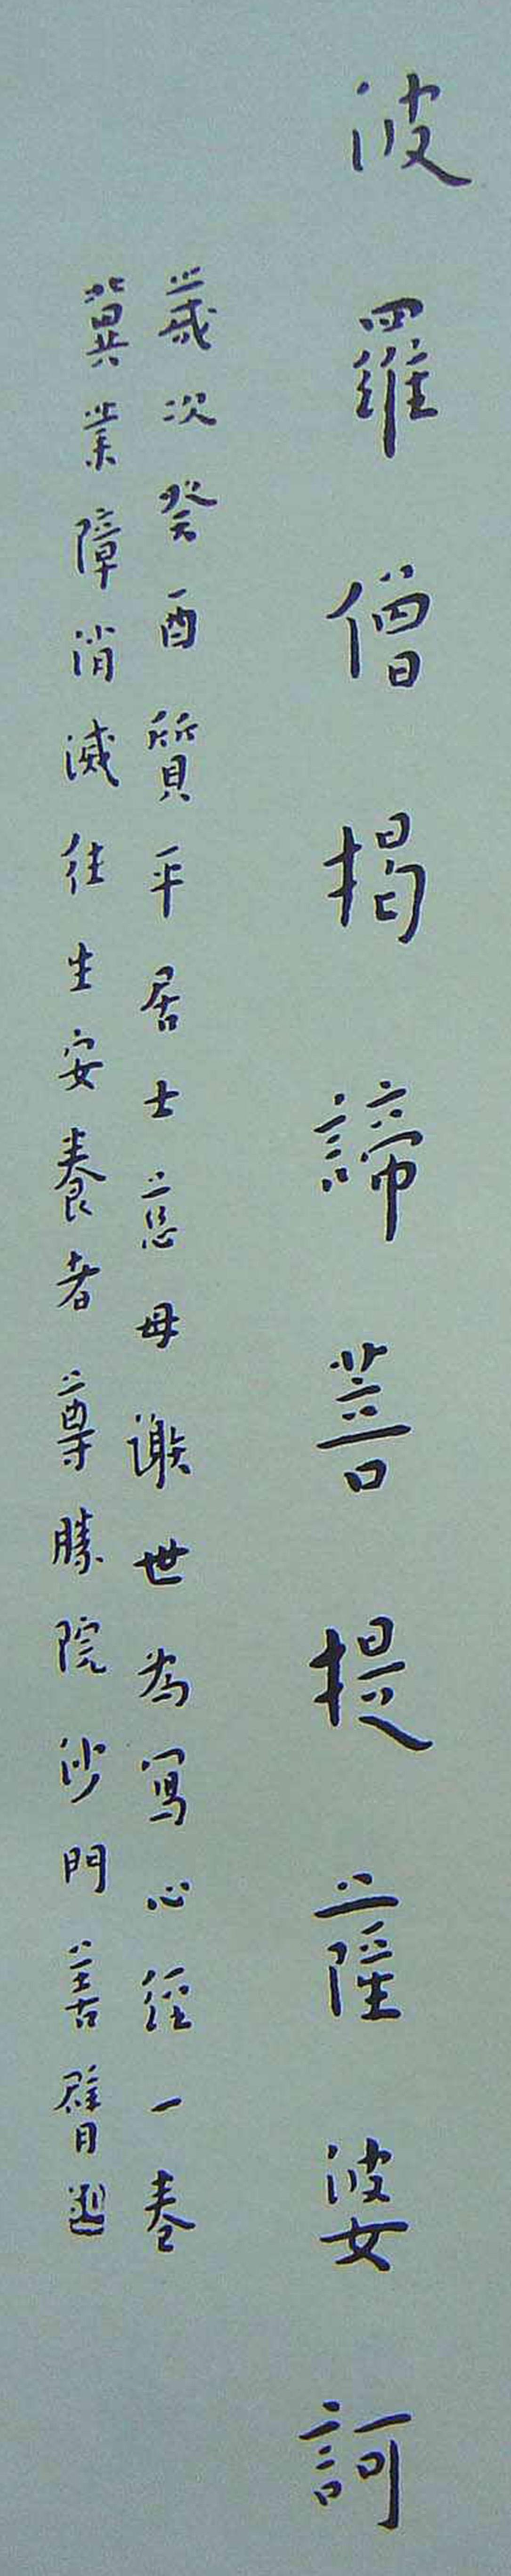 波羅僧揭諦菩提薩婆訶
歲次癸酉質平居士慈母謝世為寫心經一卷
冀業障消滅往生安養者尊勝院沙門善臂